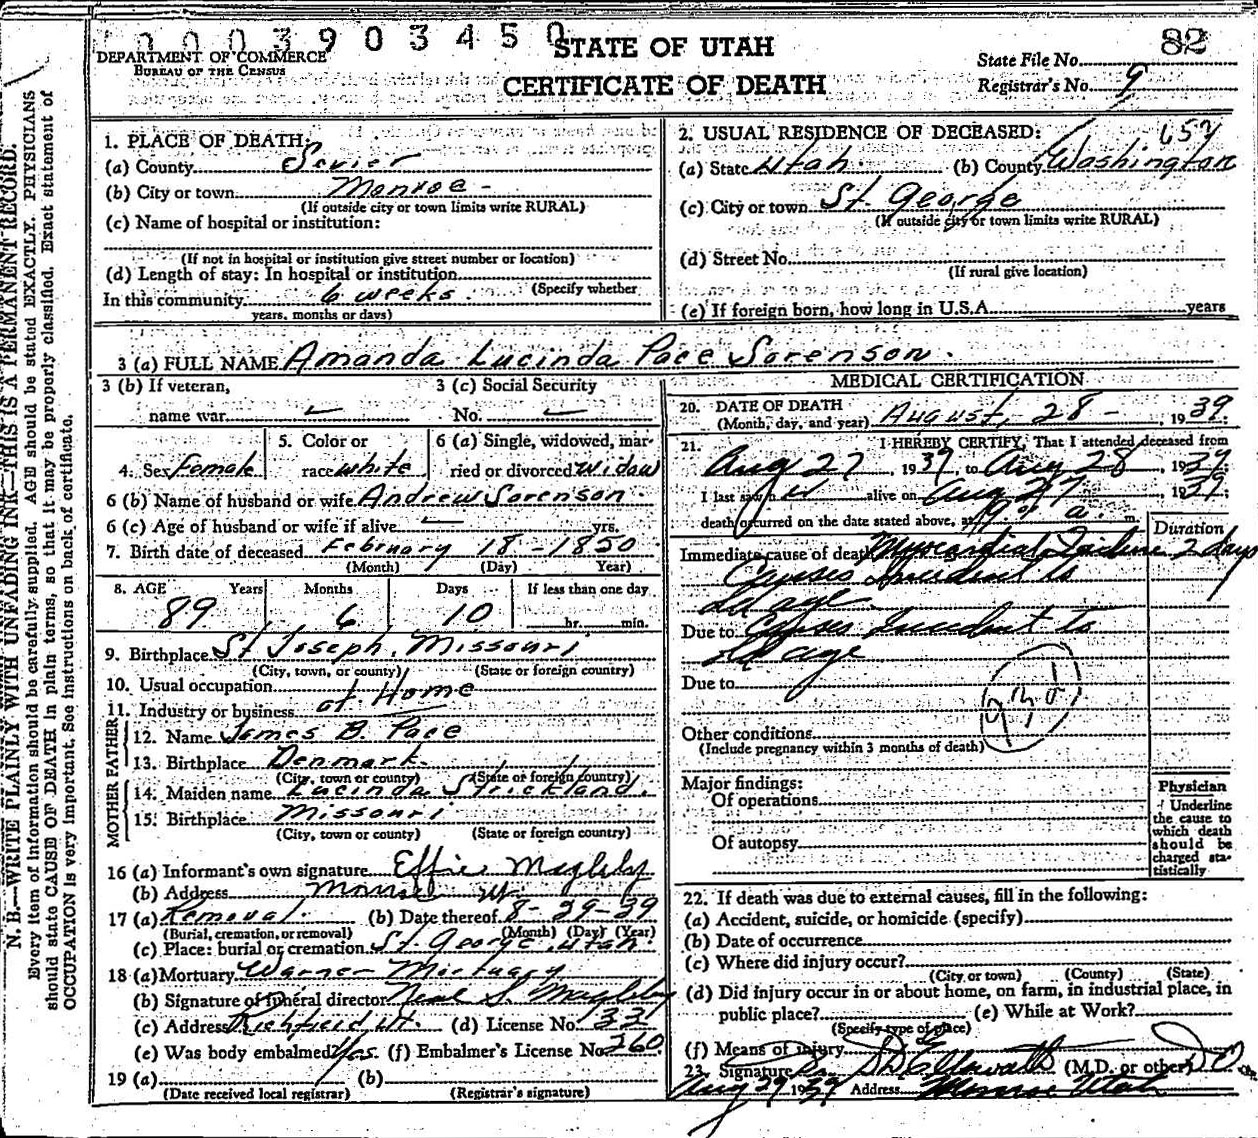 0003903450
STATE OF UTAH
CERTIFICATE OF DEATH
DEPARTMENT OF COMMERCE
BUREAU OF THE CENSUS
82
State File No.
Registrar's No. 9
N. B.—WRITE PLAINLY WITH UNFADING INK—THIS IS A PERMANENT RECORD.
Every item of information should be carefully supplied. AGE should be stated EXACTLY. PHYSICIANS
should state CAUSE OF DEATH in plain terms, so that it may be properly classified. Exact statement of
OCCUPATION is very important. See instructions on back of certificate.
1. PLACE OF DEATH:
(a) County Sevier
(b) City or town Monroe -
(If outside city or town limits write RURAL)
(c) Name of hospital or institution:
(If not in hospital or institution give street number or location)
(d) Length of stay: In hospital or institution
(Specify whether
In this community 6 weeks.
years, months or days)
2. USUAL RESIDENCE OF DECEASED: 657
(a) State Utah. (b) County Washington
(c) City or town St. George
(If outside city or town limits write RURAL)
(d) Street No.
(If rural give location)
(e) If foreign born, how long in U.S.A. years
3 (a) FULL NAME Amanda Lucinda Pace Sorenson.
3 (b) If veteran,
name war
3 (c) Social Security
No.
4. Sex Female
5. Color or
race white
6 (a) Single, widowed, mar-
ried or divorced widow
6 (b) Name of husband or wife Andrew Sorenson.
6 (c) Age of husband or wife if alive yrs.
7. Birth date of deceased February 18 - 1850
(Month) (Day) Year)
8. AGE Years Months Days If less than one day
89 6 10 hr. min.
9. Birthplace St Joseph, Missouri
(City, town, or county) (State or foreign country)
10. Usual occupation at Home
11. Industry or business
FATHER
12. Name James B. Pace
13. Birthplace Denmark.
(City, town or county) (State or foreign country)
MOTHER
14. Maiden name Lucinda Strickland.
15. Birthplace Missouri
(City, town or county) (State or foreign country)
16 (a) Informant's own signature Effie Magleby
(b) Address Monroe Ut.
17 (a) Removal. (b) Date thereof 8-29-39
(Burial, cremation, or removal) (Month) (Day) (Year)
(c) Place: burial or cremation St. George, Utah.
18 (a) Mortuary Warner Mortuary
(b) Signature of funeral director Neal S. Magleby
(c) Address Richfield Ut. (d) License No. 331
(e) Was body embalmed? Yes. (f) Embalmer's License No. 260
19 (a) (b)
(Date received local registrar) (Registrar's signature)
MEDICAL CERTIFICATION
20. DATE OF DEATH
(Month, day, and year) August, 28 - , 1939.
21. I HEREBY CERTIFY, That I attended deceased from
Aug 27, 1939, to Aug 28, 1939
I last saw alive on Aug 27, 1939
death occurred on the date stated above, at a. m.
Duration
Immediate cause of death Myocardial 2 days
Causes Incident to
old age
Due to Causes Incident to
old age
Due to
Other conditions
(Include pregnancy within 3 months of death)
Major findings:
Of operations
Of autopsy
Physician
Underline
the cause to
which death
should be
charged sta-
tistically
22. If death was due to external causes, fill in the following:
(a) Accident, suicide, or homicide (specify)
(b) Date of occurrence
(c) Where did injury occur?
(City or town) (County) (State)
(d) Did injury occur in or about home, on farm, in industrial place, in
public place? (e) While at Work?
(Specify type of place)
(f) Means of injury
23. Signature (M.D. or other) D.O.
Aug 29 1939 Address Monroe Utah